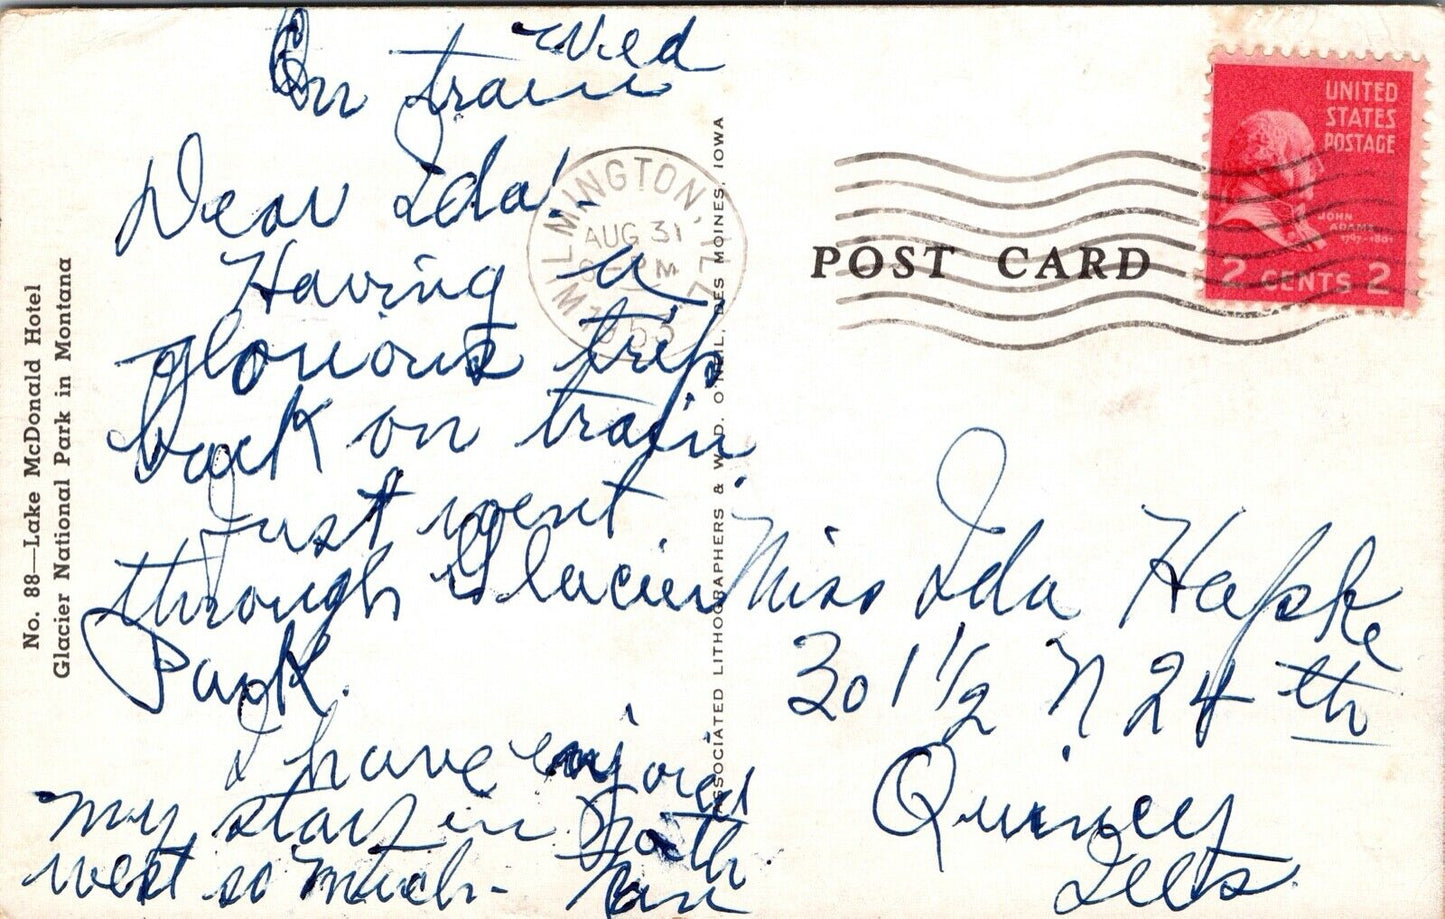 Wed
On train
Dear Ida
Having a
glorious trip
back on train
Just went
through Glacier
Park.
I have enjoyed
my stay in North
west so much -
No. 88—Lake McDonald Hotel
Glacier National Park in Montana
WILMINGTON, ILL.
AUG 31
PM
1953
ASSOCIATED LITHOGRAPHERS & W. D. O'NEIL, DES MOINES, IOWA
POST CARD
UNITED
STATES
POSTAGE
JOHN
ADAMS
1797-1801
2 CENTS 2
Miss Ida Hapke
301 1/2 N 24th
Quincy
Ills